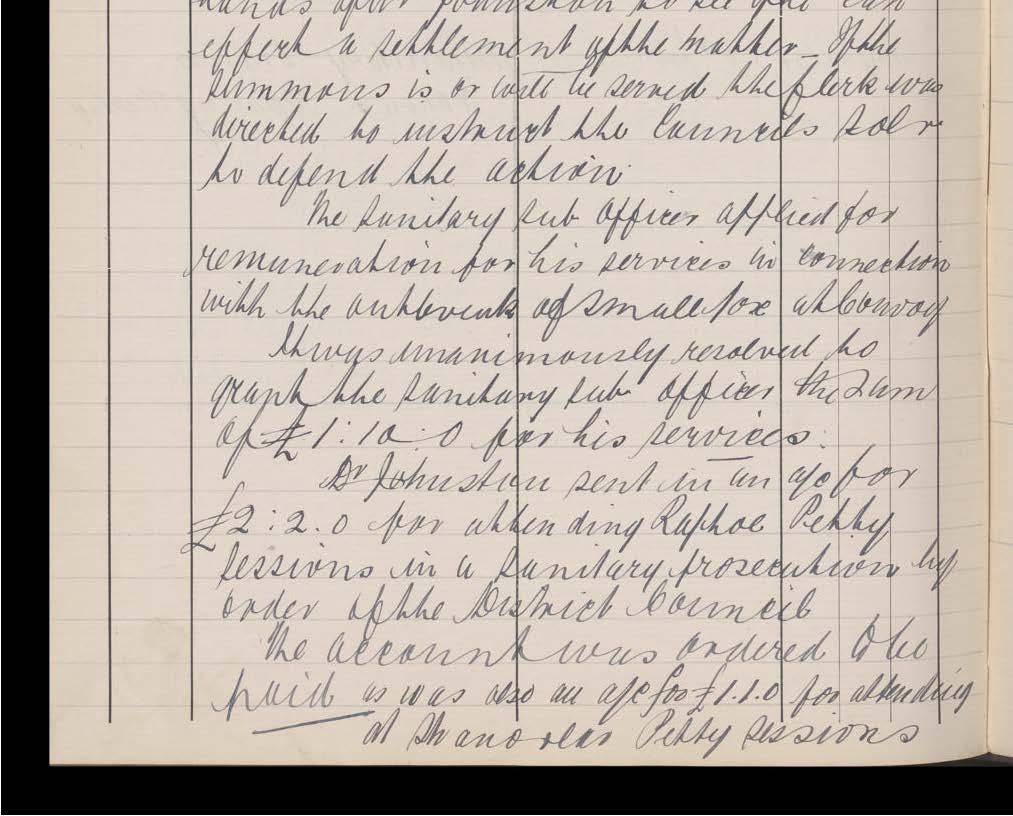 to see
effect a settlement of the matter – If the
summons is or will be served the Clerk was
directed to instruct the Councils Solr
to defend the action.
The Sanitary Sub Officer applied for
remuneration for his services in connection
with the outbreak of Small Pox at Convoy
It was unanimously resolved to
grant the Sanitary Sub Officer the Sum
of £1:10:0 for his services.
Dr Johnston sent in an a/c for
£2:2.0 for attending Raphoe Petty
Sessions in a Sanitary prosecution by
order of the District Council
The account was ordered to be
paid as was also an a/c for £1.1.0 for attending
at Stranorlar Petty Sessions